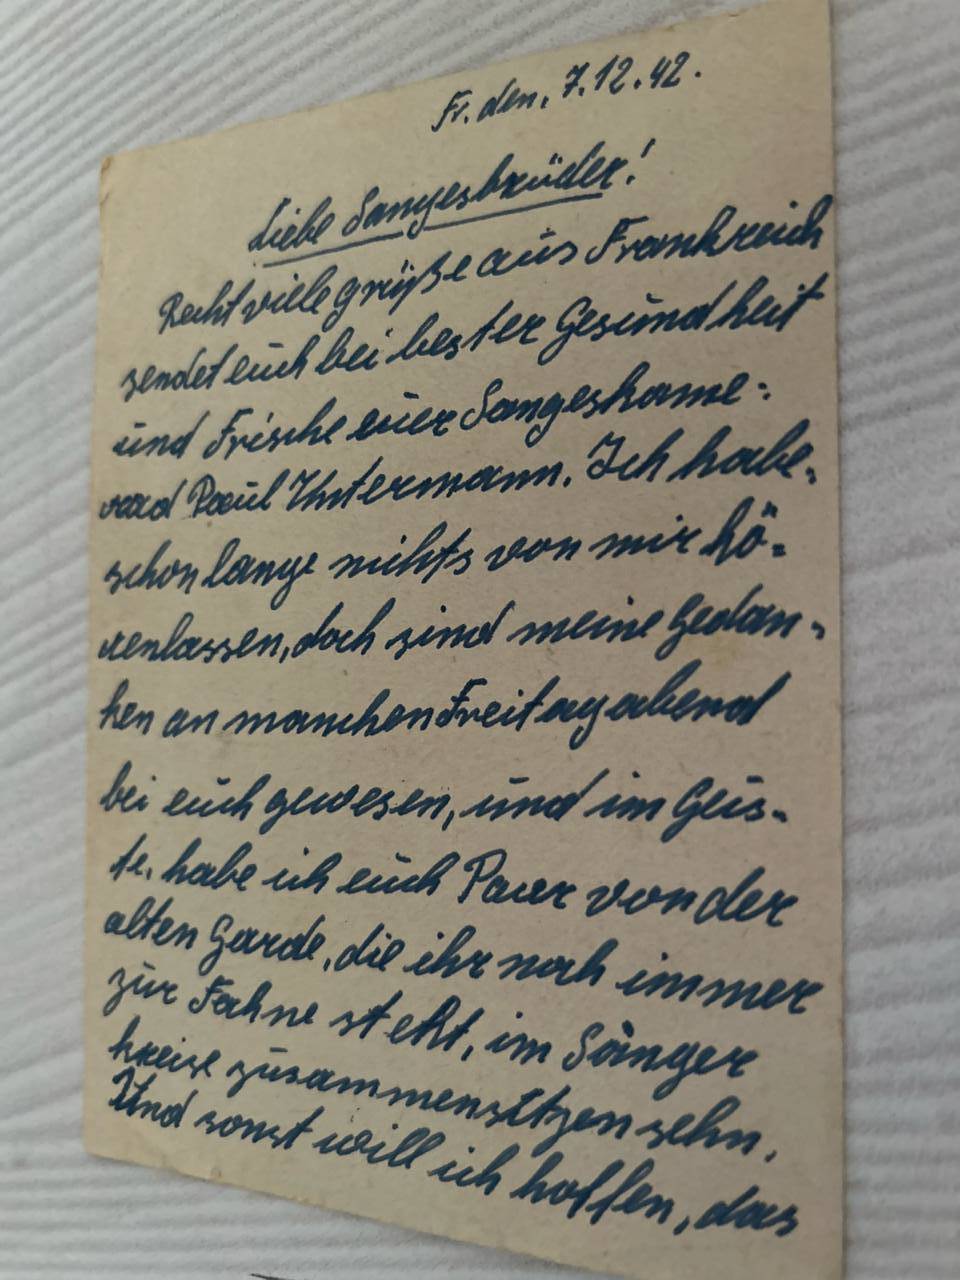 Fr. den. 7.12.42.
Liebe Sangesbrüder!
Recht viele grüße aus Frankreich
sendet euch bei bester Gesundheit
und Frische euer Sangeskame=
rad Paul Untermann. Ich habe
schon lange nichts von mir hö=
renlassen, doch sind meine Gedan=
ken an manchen Freitagabend
bei euch gewesen, und im Geis=
te, habe ich euch Paar von der
alten Garde, die ihr noch immer
zur Fahne steht, im Sänger
kreise zusammensitzen sehn.
Und sonst will ich hoffen, das